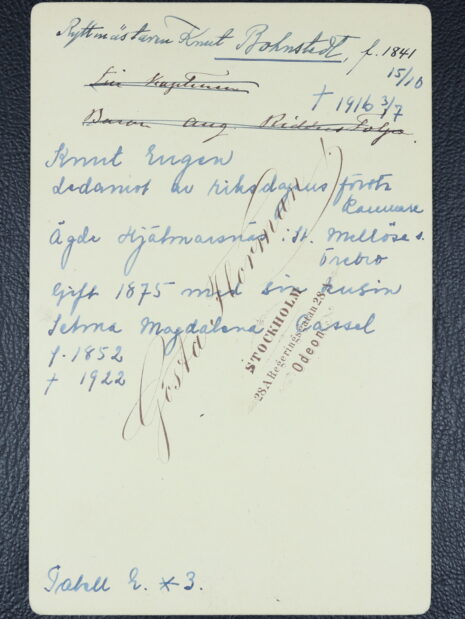 Ryttmästaren Knut Bohnstedt, f. 1841
15/10
† 1916 3/7
Lin Kaptenen
Baron Aug Ridderstolpe.
Knut Eugen
Ledamot av riksdagens första
Kammare
Ägde Hjälmarsnäs i St. Mellösa s.
Örebro
Gift 1875 med sin kusin
Selma Magdalena Cassel
f. 1852
† 1922
Gösta Florman
STOCKHOLM
28A Regeringsgatan 28A
Odeon
Tabell E. * 3.